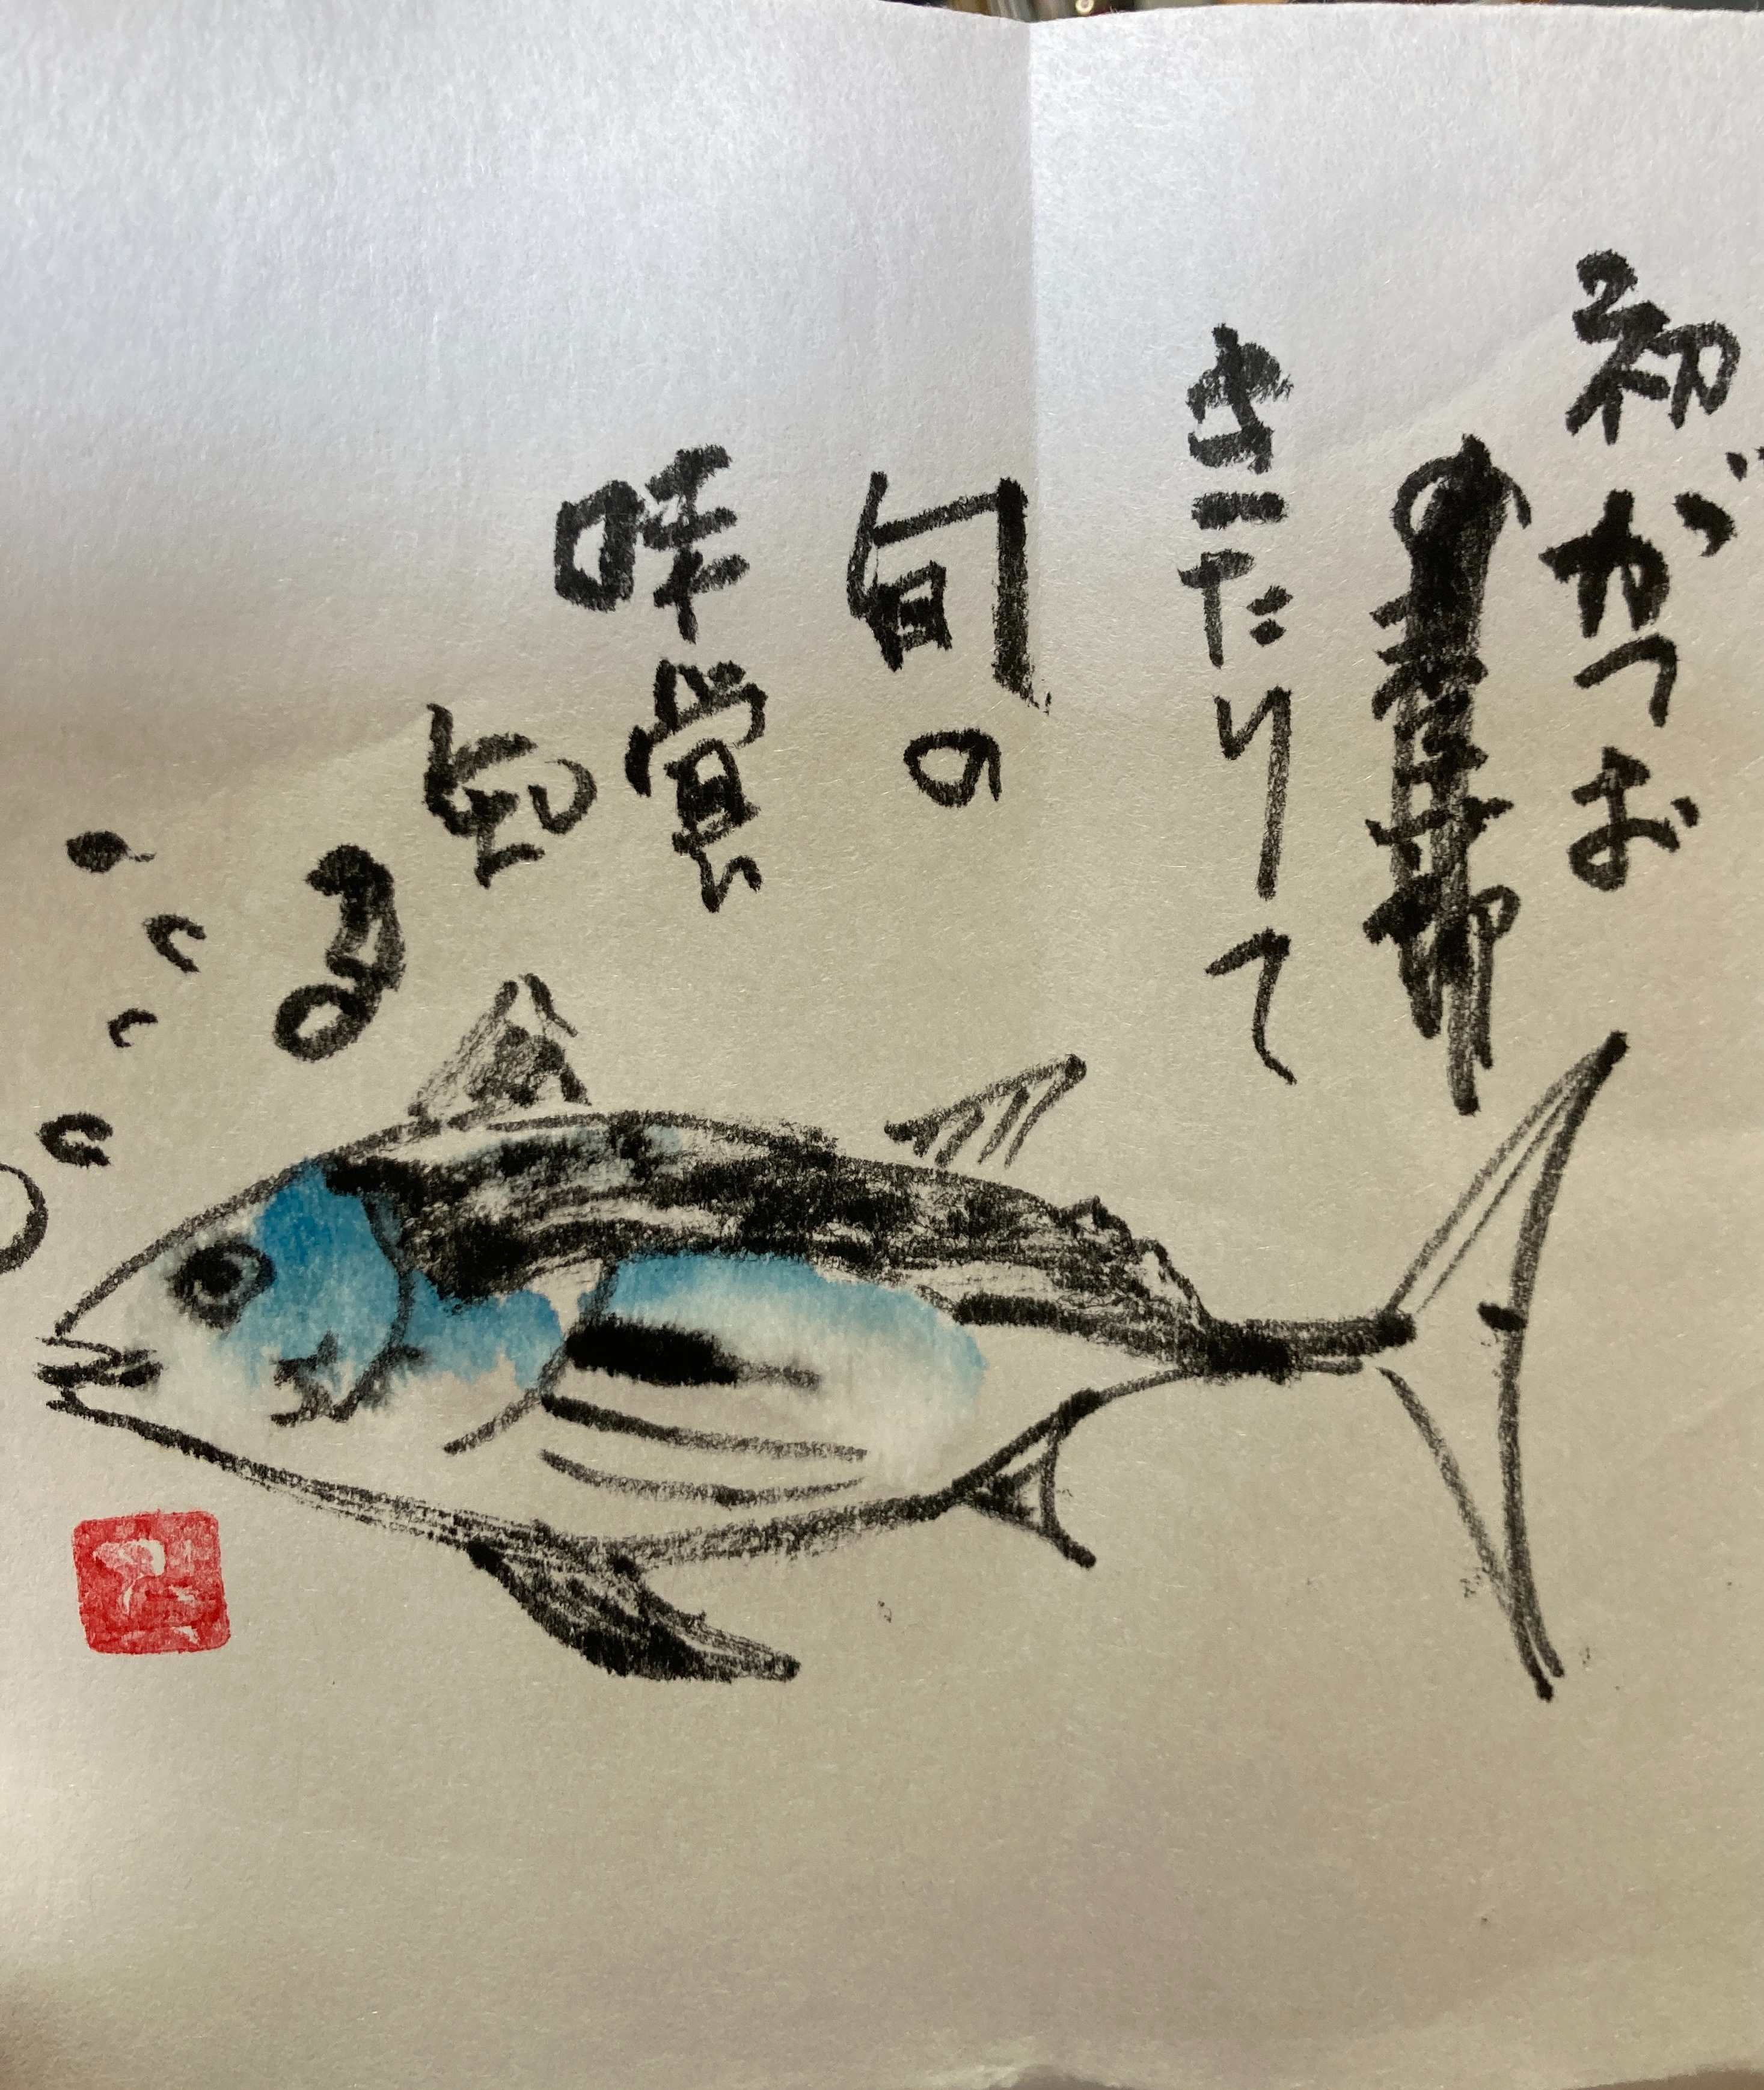 初がつお
きたりて
旬の
味覚
知
る